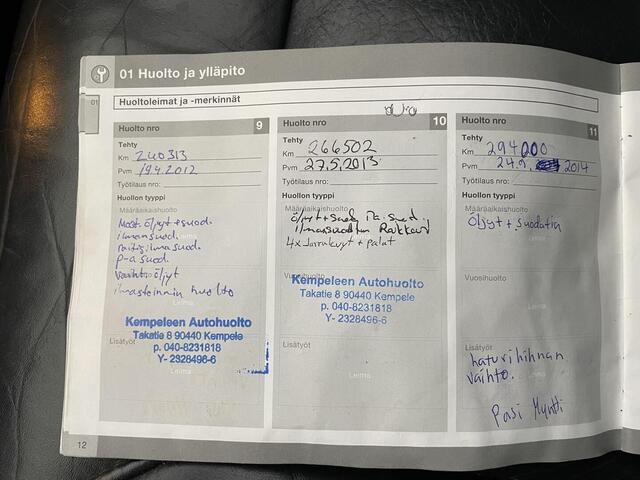 01 Huolto ja ylläpito
01
Huoltoleimat ja -merkinnät
Huolto nro 9
Tehty
Km 240313
Pvm 19.4.2012
Työtilaus nro:
Huollon tyyppi
Määräaikaishuolto
Moot. öljyt+suod.
ilmansuod.
raitisilmasuod.
p-a suod.
Vuosihuolto
vaihto öljyt
ilmastoinnin huolto
Kempeleen Autohuolto
Takatie 8 90440 Kempele
p. 040-8231818
Y- 2328496-6
Lisätyöt
Leima
Huolto nro 10
Tehty
Km 266502
Pvm 27.5.2013
Työtilaus nro:
Huollon tyyppi
Määräaikaishuolto
öljyt+suod. suod.
ilmansuodatin
4x Jarrulevyt + palat
Vuosihuolto
Kempeleen Autohuolto
Takatie 8 90440 Kempele
p. 040-8231818
Y- 2328496-6
Lisätyöt
Huolto nro 11
Tehty
Km 294200
Pvm 24.9. 2014
Työtilaus nro:
Huollon tyyppi
Määräaikaishuolto
Öljyt + suodatin
Vuosihuolto
Lisätyöt
hihnan
vaihto.
Pasi
12